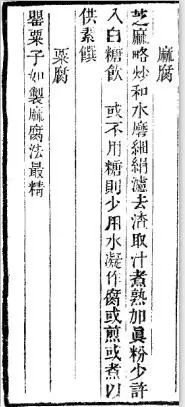 麻腐
芝麻略炒和水磨細絹濾去渣取汁煮熟加眞粉少許
入白糖飲　或不用糖則少用水凝作腐或煎或煮以
供素饌
粟腐
罌粟子如製麻腐法最精